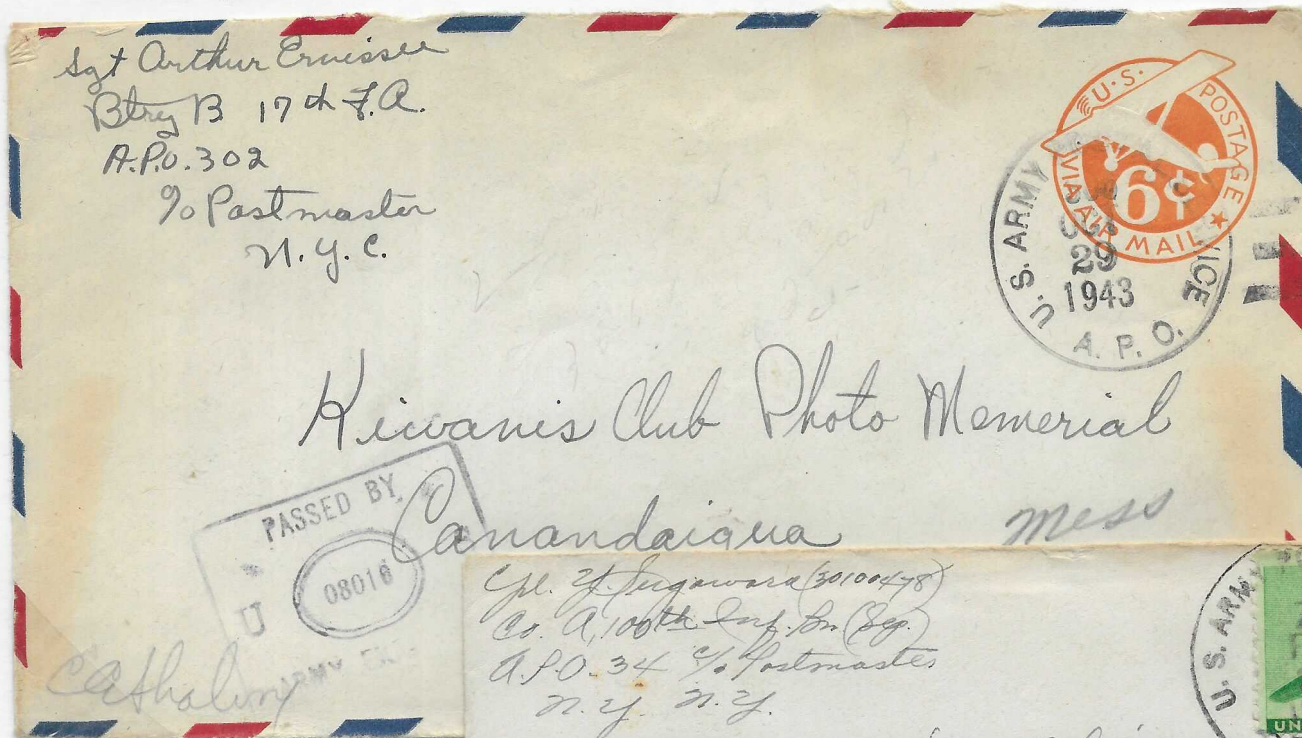 Sgt Arthur
Btry B 17th F.A.
A.P.O. 302
c/o Postmaster
N.Y.C.
U.S. POSTAGE
VIA AIR MAIL
6¢
U.S. ARMY
29
1943
A.P.O.
Kiwanis Club Photo Memerial
Canandaigua
Mess
PASSED BY
U
08016
ARMY
Cpl. Y. Sugawara (30100478)
Co. A, 100th Inf. Bn. (Sep.)
A.P.O. 34 c/o Postmaster
N.Y. N.Y.
U.S. ARMY
UN